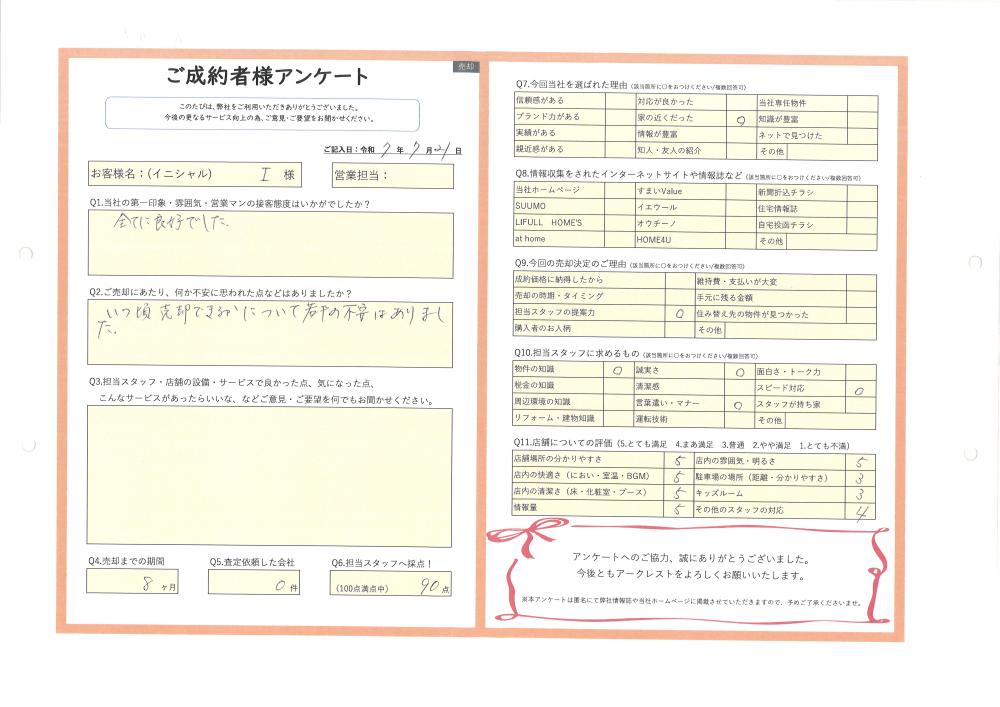 売却
ご成約者様アンケート
このたびは、弊社をご利用いただきありがとうございました。
今後の更なるサービス向上の為、ご意見・ご要望をお聞かせください。
ご記入日：令和 7 年 7 月 21 日
お客様名：(イニシャル) I 様
営業担当：
Q1.当社の第一印象・雰囲気・営業マンの接客態度はいかがでしたか？
全てに良好でした。
Q2.ご売却にあたり、何か不安に思われた点などはありましたか？
いつ頃売却できるかについて若干の不安はありまし
た。
Q3.担当スタッフ・店舗の設備・サービスで良かった点、気になった点、
こんなサービスがあったらいいな、などご意見・ご要望を何でもお聞かせください。
Q4.売却までの期間
8 ヶ月
Q5.査定依頼した会社
0 件
Q6.担当スタッフへ採点！
(100点満点中) 90 点
Q7.今回当社を選ばれた理由 (該当箇所に〇をおつけください/複数回答可)
信頼感がある 対応が良かった 当社専任物件
ブランド力がある 家の近くだった ○ 知識が豊富
実績がある 情報が豊富 ネットで見つけた
親近感がある 知人・友人の紹介 その他
Q8.情報収集をされたインターネットサイトや情報誌など (該当箇所に〇をおつけください/複数回答可)
当社ホームページ すまいValue 新聞折込チラシ
SUUMO イエウール 住宅情報誌
LIFULL HOME'S オウチーノ 自宅投函チラシ
at home HOME4U その他
Q9.今回の売却決定のご理由 (該当箇所に〇をおつけください/複数回答可)
成約価格に納得したから 維持費・支払いが大変
売却の時期・タイミング 手元に残る金額
担当スタッフの提案力 ○ 住み替え先の物件が見つかった
購入者のお人柄 その他
Q10.担当スタッフに求めるもの (該当箇所に〇をおつけください/複数回答可)
物件の知識 ○ 誠実さ ○ 面白さ・トーク力
税金の知識 清潔感 スピード対応 ○
周辺環境の知識 言葉遣い・マナー ○ スタッフが持ち家
リフォーム・建物知識 運転技術 その他
Q11.店舗についての評価 (5.とても満足 4.まあ満足 3.普通 2.やや満足 1.とても不満)
店舗場所の分かりやすさ 5 店内の雰囲気・明るさ 5
店内の快適さ (におい・室温・BGM) 5 駐車場の場所 (距離・分かりやすさ) 3
店内の清潔さ (床・化粧室・ブース) 5 キッズルーム 3
情報量 5 その他のスタッフの対応 4
アンケートへのご協力、誠にありがとうございました。
今後ともアークレストをよろしくお願いいたします。
※本アンケートは匿名にて弊社情報誌や当社ホームページに掲載させていただきますので、予めご了承くださいませ。